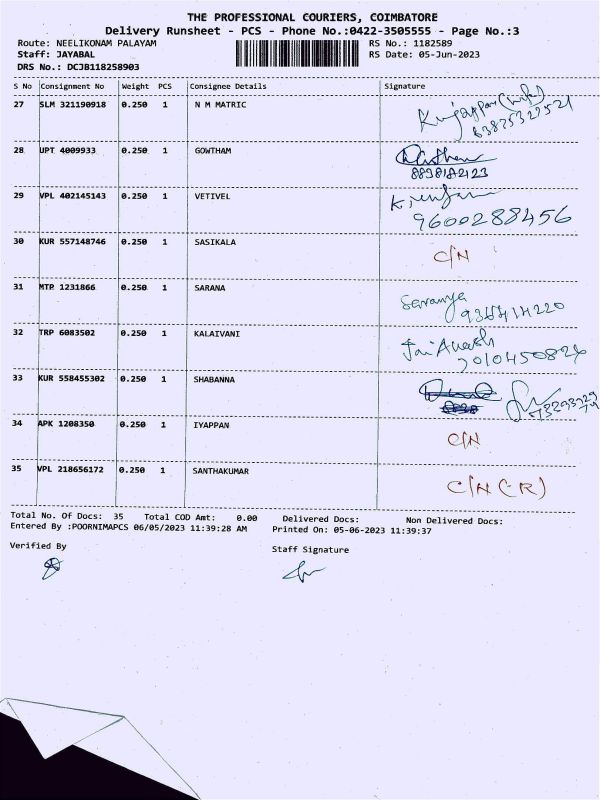 THE PROFESSIONAL COURIERS, COIMBATORE
Delivery Runsheet - PCS - Phone No.:0422-3505555 - Page No.:3
Route: NEELIKONAM PALAYAM
RS No.: 1182589
Staff: JAYABAL
RS Date: 05-Jun-2023
DRS No.: DCJB118258903
S No Consignment No Weight PCS Consignee Details Signature
27 SLM 321190918 0.250 1 N M MATRIC
28 UPT 4009933 0.250 1 GOWTHAM
8898182123
29 VPL 402145143 0.250 1 VETIVEL
9600288456
30 KUR 557148746 0.250 1 SASIKALA C/N
31 MTP 1231866 0.250 1 SARANA Saranya
32 TRP 6083502 0.250 1 KALAIVANI
33 KUR 558455302 0.250 1 SHABANNA
34 APK 1208350 0.250 1 IYAPPAN C/N
35 VPL 218656172 0.250 1 SANTHAKUMAR C/N (-R)
Total No. Of Docs: 35 Total COD Amt: 0.00 Delivered Docs: Non Delivered Docs:
Entered By :POORNIMAPCS 06/05/2023 11:39:28 AM Printed On: 05-06-2023 11:39:37
Verified By
Staff Signature